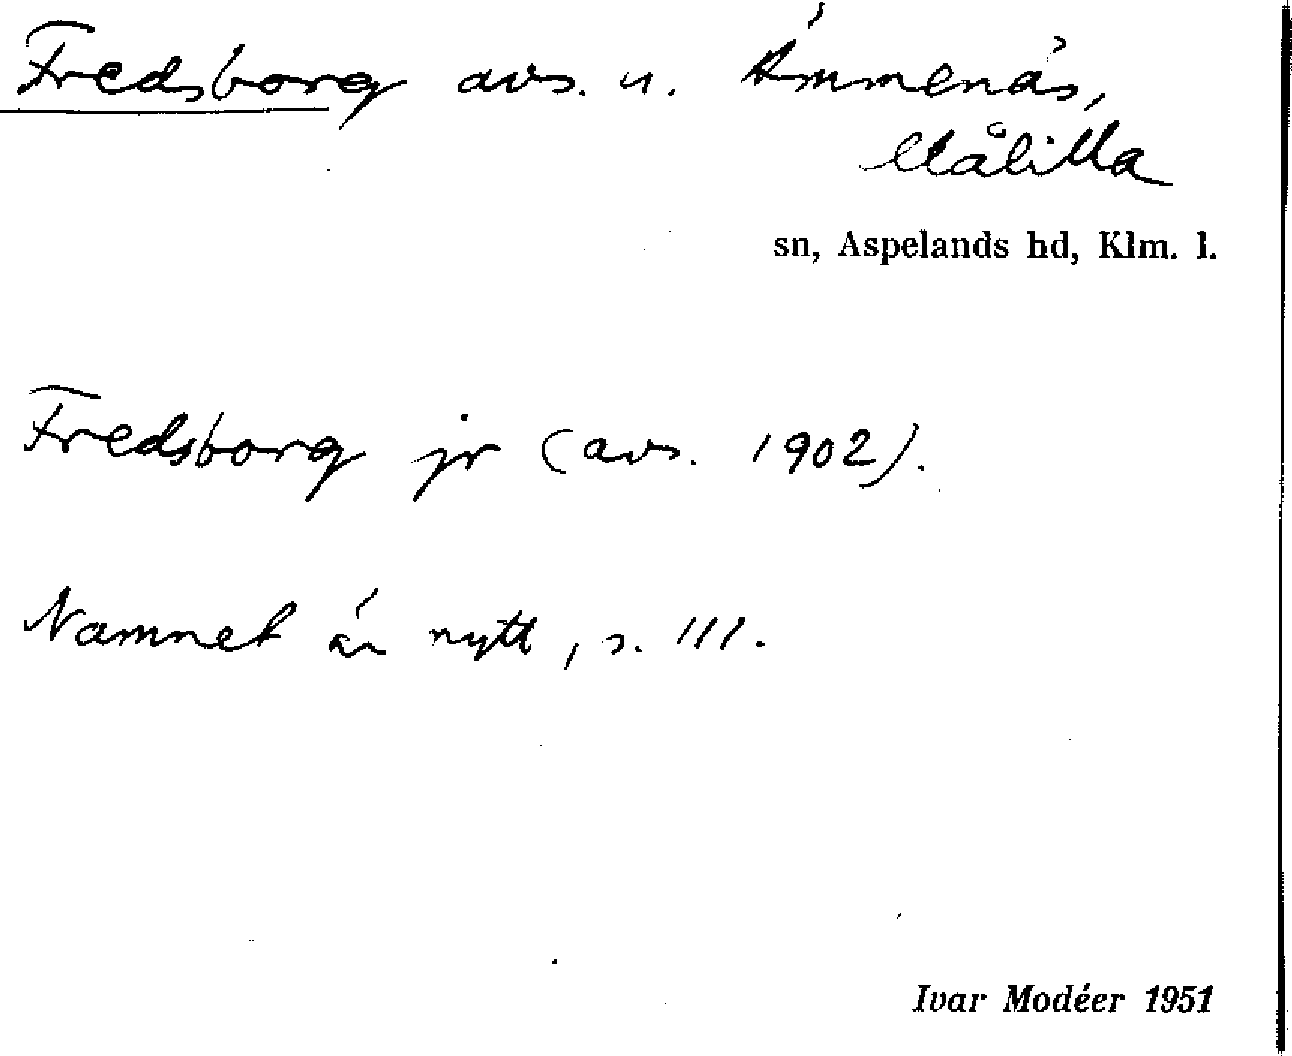 Fredsborg avs. u. Ämmenäs,
Målilla
sn, Aspelands hd, Klm. l.
Fredsborg jr (avs. 1902).
Namnet är nytt, s. III.
Ivar Modéer 1951